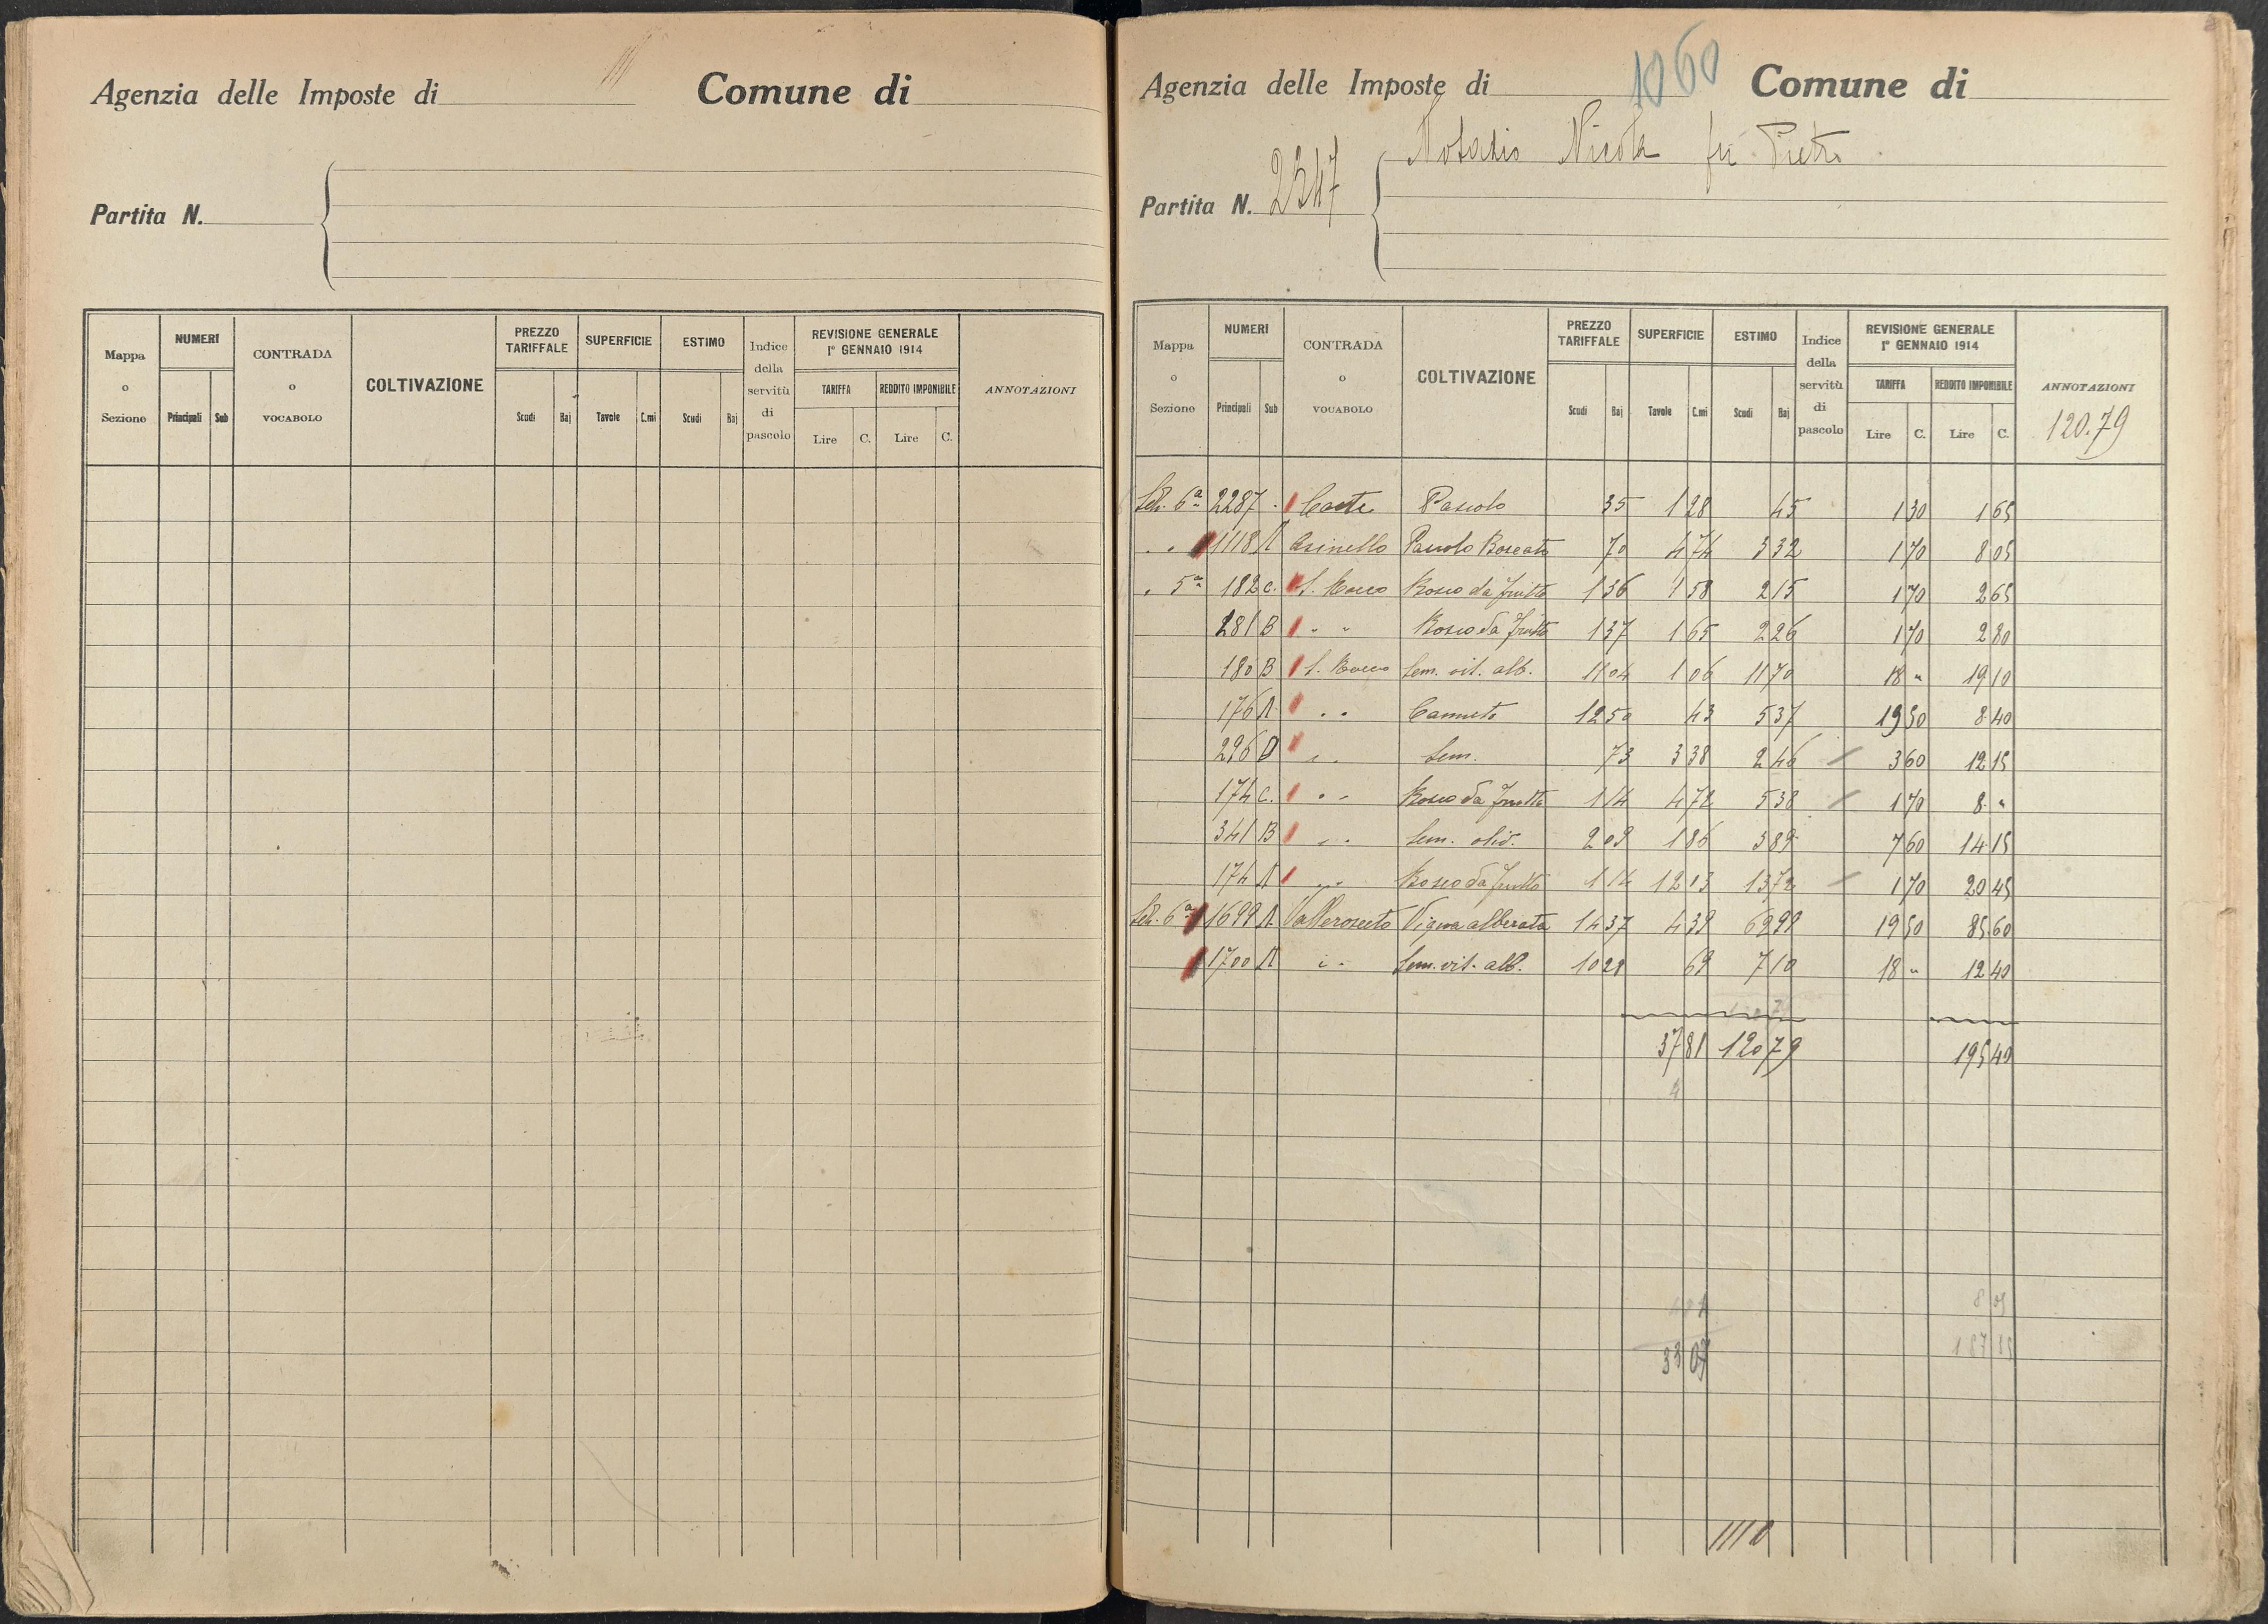 Agenzia delle Imposte di Comune di
Partita N.
Mappa o Sezione NUMERI Principali Sub CONTRADA o VOCABOLO COLTIVAZIONE PREZZO TARIFFALE Scudi Baj SUPERFICIE Tavole C.mi ESTIMO Scudi Baj Indice della servitù di pascolo REVISIONE GENERALE 1° GENNAIO 1914 TARIFFA Lire C. REDDITO IMPONIBILE Lire C. ANNOTAZIONI
1060
Agenzia delle Imposte di Comune di
Nicola fu Pietro
Partita N. 2347
Mappa o Sezione NUMERI Principali Sub CONTRADA o VOCABOLO COLTIVAZIONE PREZZO TARIFFALE Scudi Baj SUPERFICIE Tavole C.mi ESTIMO Scudi Baj Indice della servitù di pascolo REVISIONE GENERALE 1° GENNAIO 1914 TARIFFA Lire C. REDDITO IMPONIBILE Lire C. ANNOTAZIONI
120.79
Sez. 6a 2287 Coste Pascolo 35 1 28 45 1 30 1 65
" " 1118 A Asinello Pascolo Boscato 70 4 74 3 32 1 70 8 05
" 5a 182 C. S. Rocco Bosco da frutto 1 36 1 58 2 15 1 70 2 65
281 B " " Bosco da frutto 1 37 1 65 2 26 1 70 2 80
180 B S. Rocco Sem. vit. alb. 11 04 1 06 11 70 18 " 19 10
176 A " " Canneto 12 50 43 5 37 19 50 8 40
296 D " " Sem. 73 3 38 2 46 3 60 12 15
174 C. " " Bosco da frutto 1 14 4 72 5 38 1 70 8 "
341 B " " Sem. oliv. 2 09 1 86 3 89 7 60 14 15
174 A " " Bosco da frutto 1 14 12 03 13 72 1 70 20 45
Sez. 6a 1699 A Valleroseto Vigna alberata 14 37 4 39 62 99 19 50 85 60
1700 A " " Sem. vit. alb. 10 29 69 7 10 18 " 12 40
37 81 120 79 195 40
8 05
33 07 187 35